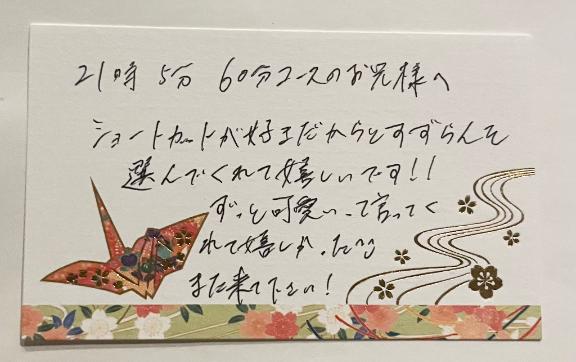 21時 5分 60分コースのお兄様へ
ショートカットが好きだからとすずらんを
選んでくれて嬉しいです!!
ずっと可愛いって言ってく
れて嬉しかった
また来て下さい!